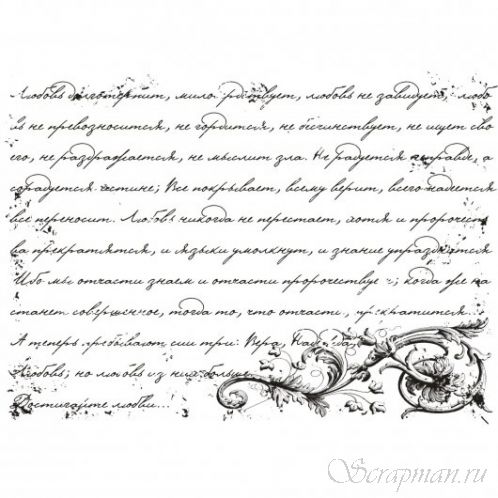 Любовь долготерпит, милосердствует, любовь не завидует, любо
вь не превозносится, не гордится, не бесчинствует, не ищет сво
его, не раздражается, не мыслит зла. Не радуется неправде, а
сорадуется истине; Все покрывает, всему верит, всего надеется
все переносит. Любовь никогда не перестает, хотя и пророчест
ва прекратятся, и языки умолкнут, и знание упразднится
Ибо мы отчасти знаем и отчасти пророчествуем; когда же на
станет совершенное, тогда то, что отчасти, прекратится.
А теперь пребывают сии три: Вера, Надежда,
Любовь; но любовь из них больше.
Достигайте любви...
Scrapman.ru